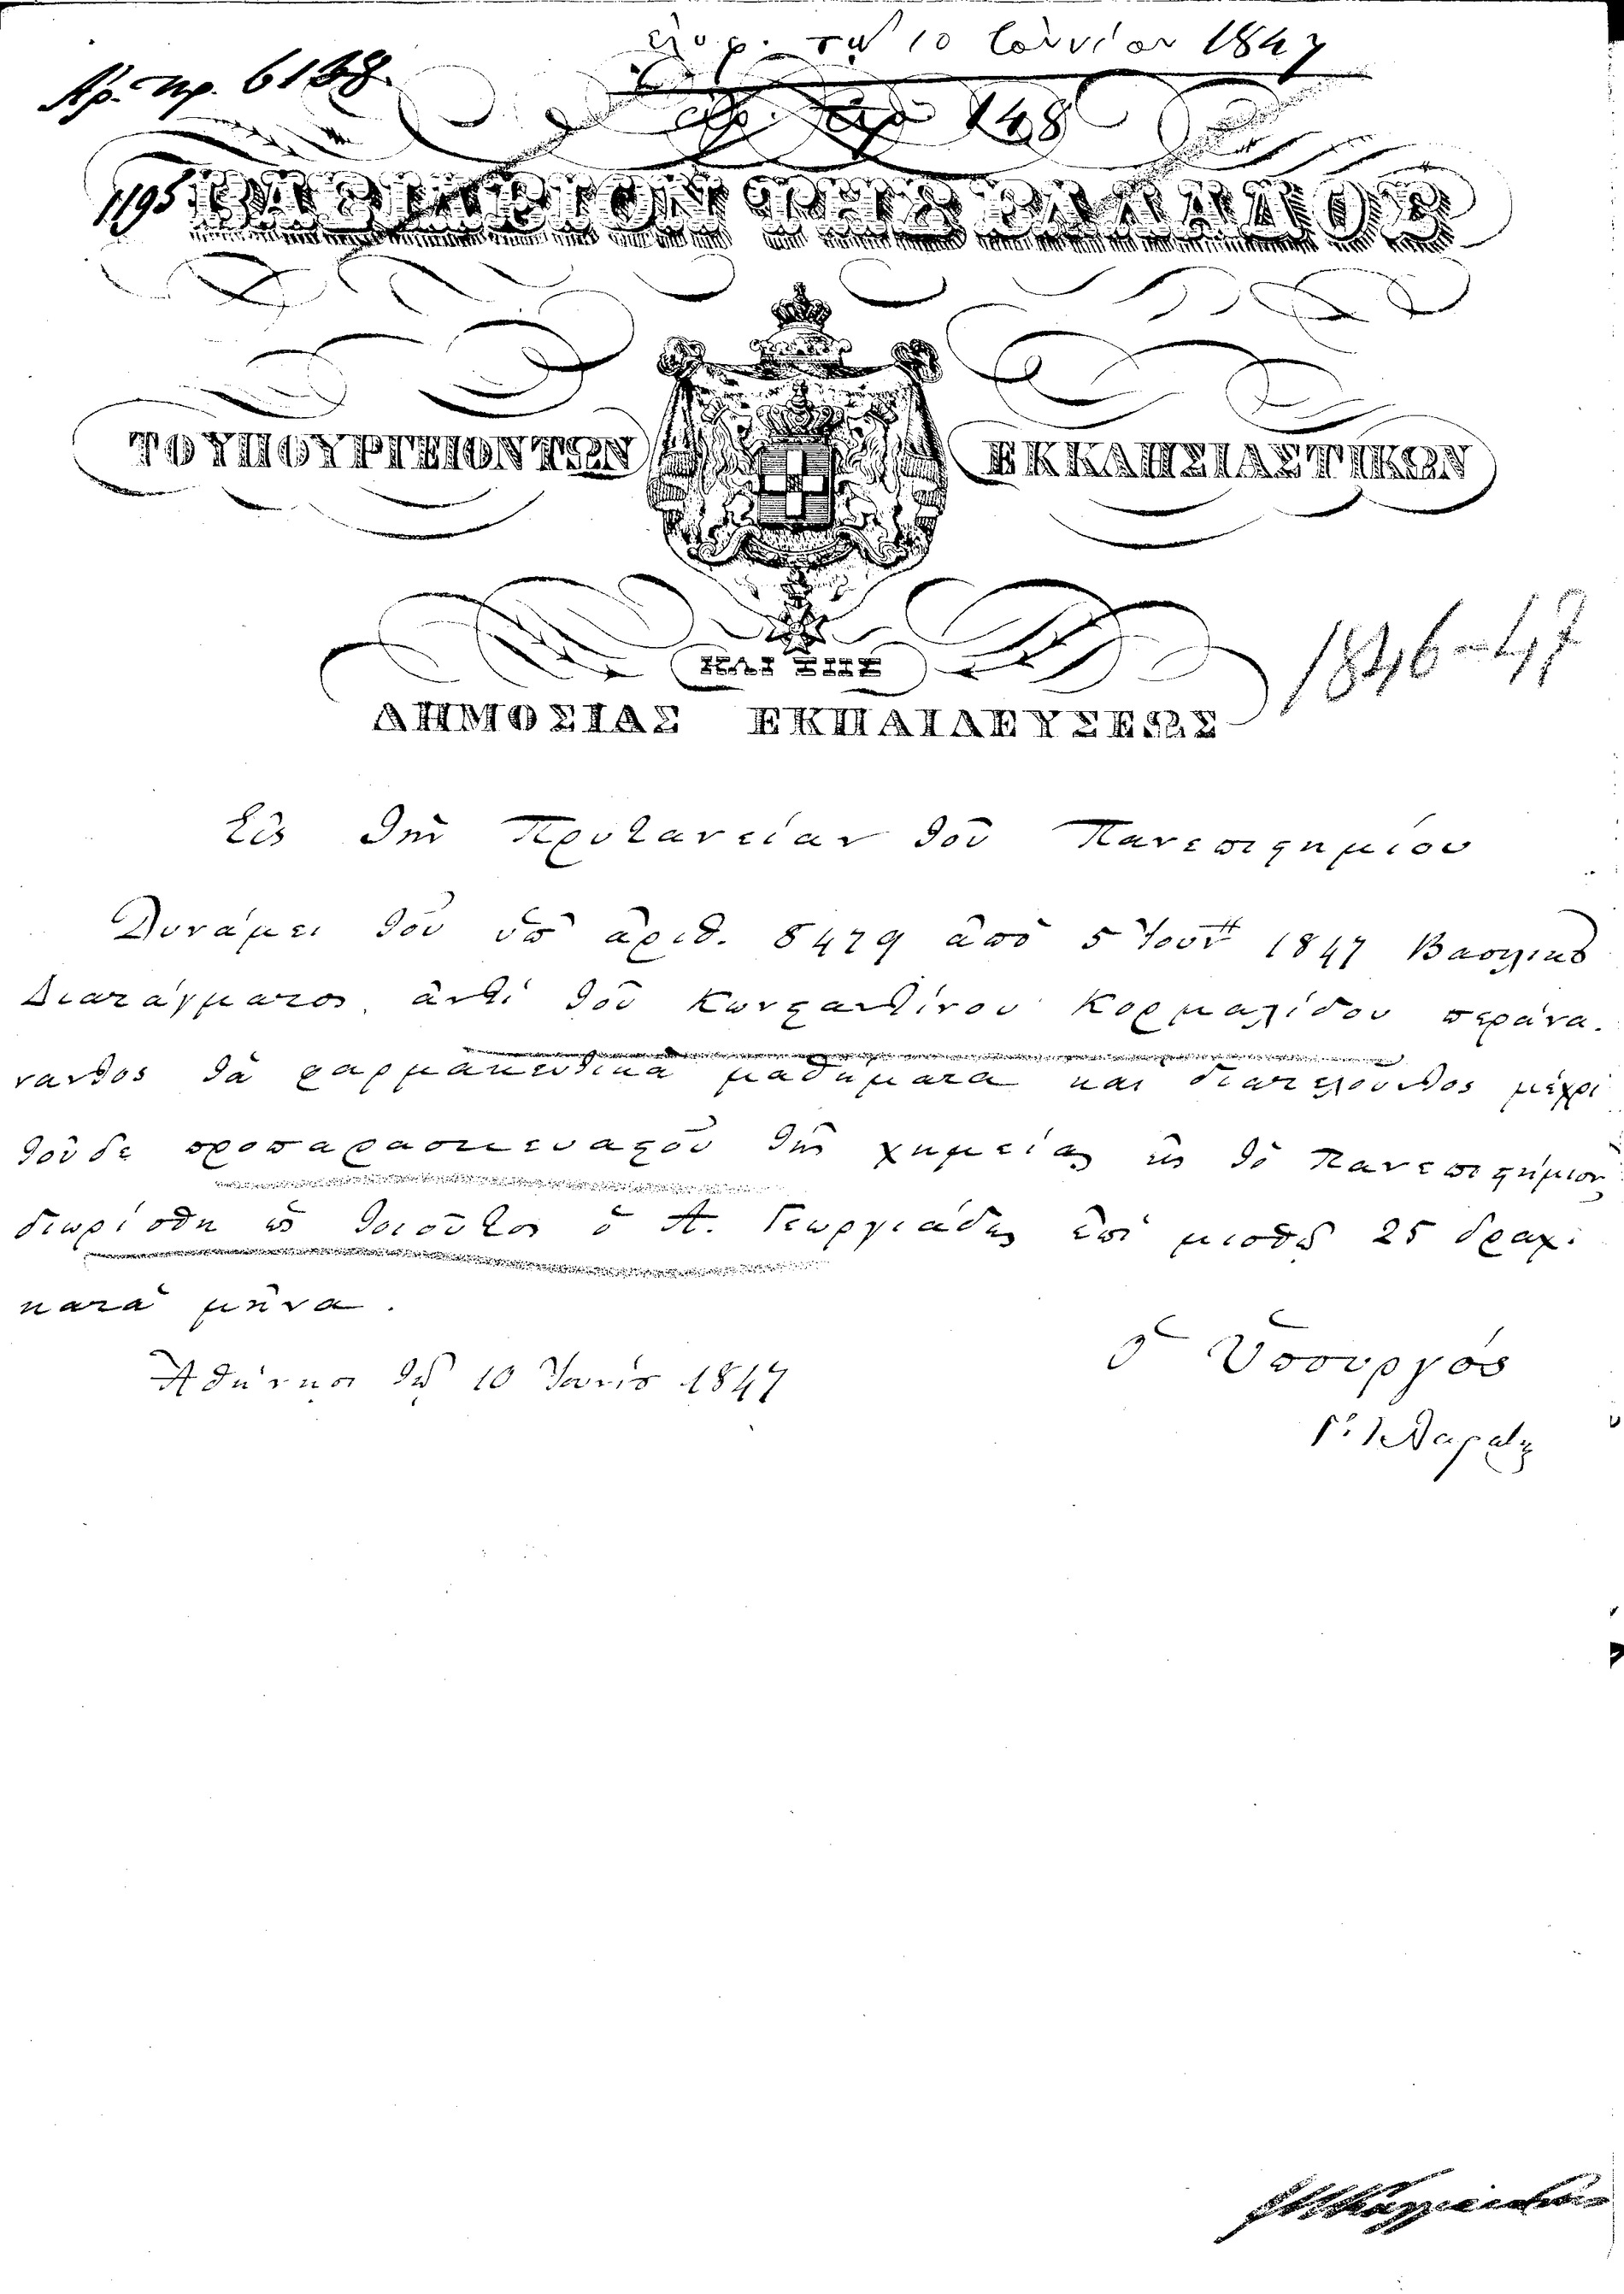 ἐλήφ. τῇ 10 Ἰουνίου 1847
Ἀρ. πρ. 6138
148
1195 ΒΑΣΙΛΕΙΟΝ ΤΗΣ ΕΛΛΑΔΟΣ
ΤΟ ΥΠΟΥΡΓΕΙΟΝ ΤΩΝ ΕΚΚΛΗΣΙΑΣΤΙΚΩΝ
1846-47
ΚΑΙ ΤΗΣ
ΔΗΜΟΣΙΑΣ ΕΚΠΑΙΔΕΥΣΕΩΣ
Εἰς τὴν Πρυτανείαν τοῦ Πανεπιστημίου
Δυνάμει τοῦ ὑπ' ἀριθ. 8479 ἀπὸ 5 Ἰουν 1847 Βασιλικοῦ
Διατάγματος, ἀντὶ τοῦ Κωνσταντίνου Κορμαλίδου περάνα-
ναντος τὰ φαρμακευτικὰ μαθήματα καὶ διατελοῦντος μέχρι
τοῦδε προπαρασκευαστοῦ τῆς χημείας εἰς τὸ Πανεπιστήμιον,
διωρίσθη ὡς τοιοῦτος ὁ Α. Γεωργιάδης ἐπὶ μισθῷ 25 δραχ:
κατὰ μῆνα.
Ἀθήνησι τῇ 10 1847
Ὁ Ὑπουργός